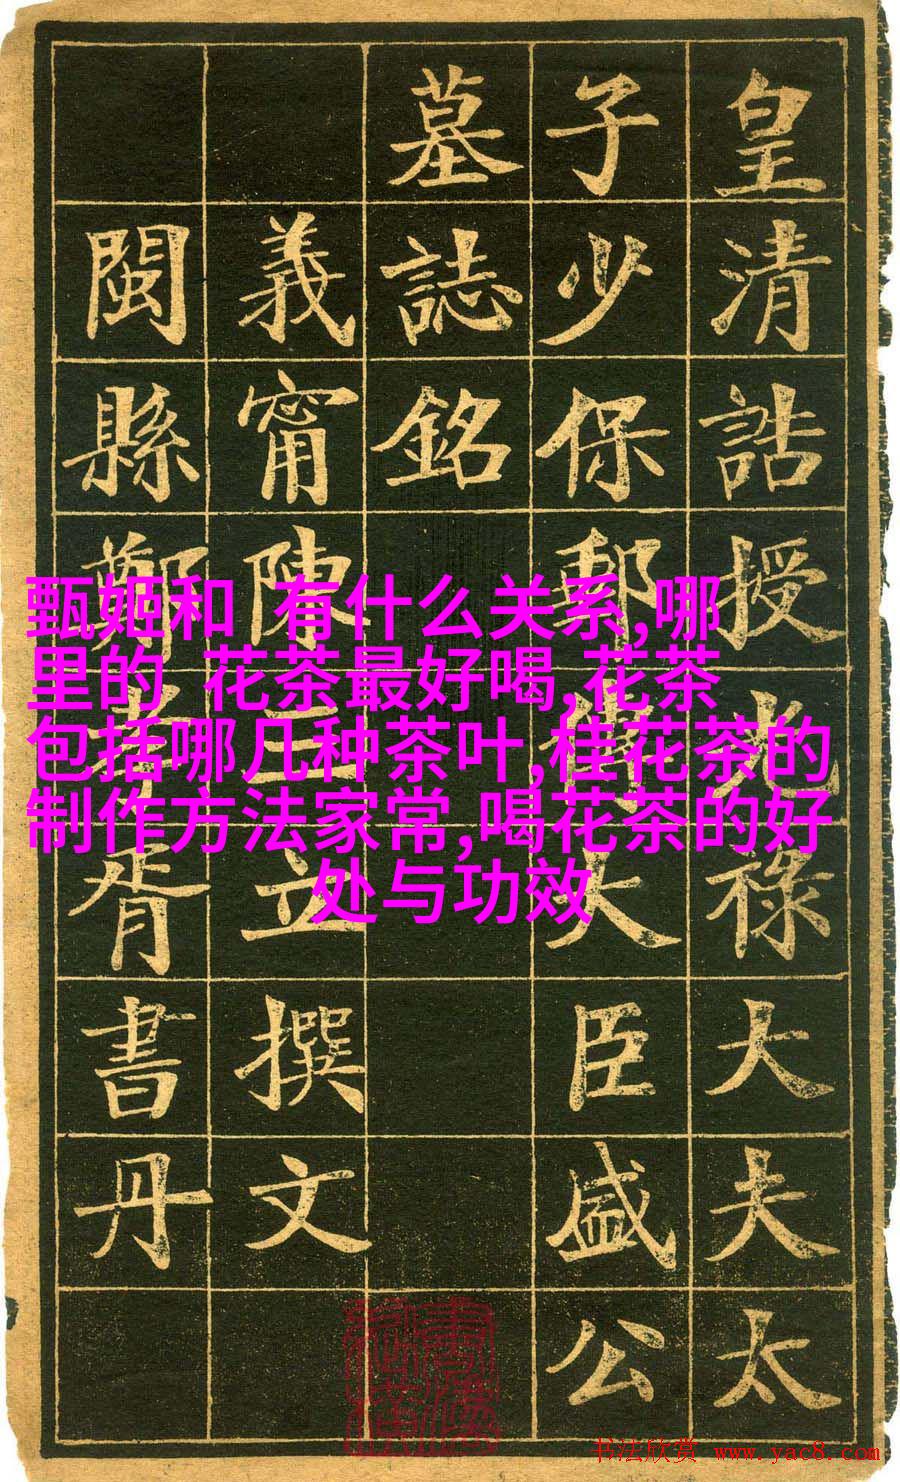 皇清誥授光祿大夫太
子少保郵傳大臣盛公
墓誌銘
義甯陳三立撰文
閩縣鄭孝胥書丹
甄姬和 有什么关系,哪
里的 花茶最好喝,花茶
包括哪几种茶叶,桂花茶的
制作方法家常,喝花茶的好
处与功效
书法欣赏 www.yac8.com